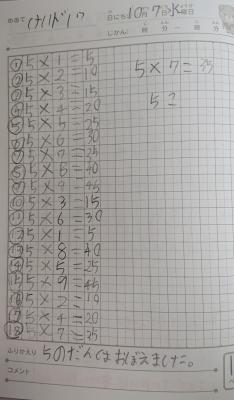 めあて けいさ゛ん
日にち 10月 7日 水曜日
じかん: 時 分 ー 時 分
① 5 × 1 = 5
② 5 × 2 = 10
③ 5 × 3 = 15
④ 5 × 4 = 20
⑤ 5 × 5 = 25
⑥ 5 × 6 = 30
⑦ 5 × 7 = 35
⑧ 5 × 8 = 40
⑨ 5 × 9 = 45
⑩ 5 × 3 = 15
⑪ 5 × 6 = 30
⑫ 5 × 1 = 5
⑬ 5 × 8 = 40
⑭ 5 × 5 = 25
⑮ 5 × 9 = 45
⑯ 5 × 2 = 10
⑰ 5 × 4 = 20
⑱ 5 × 7 = 35
5 × 7 = 35
ふりかえり 5のだんはおぼえました。
コメント